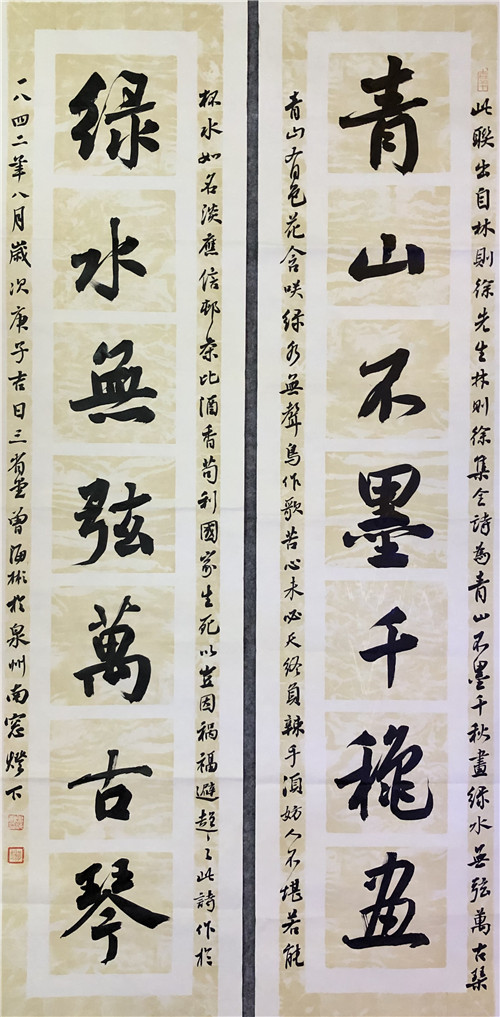 此聯出自林則徐先生林则徐集全詩為青山不墨千秋畫绿水無弦萬古琴
青山不墨千穐画
青山有色花含咲绿水無聲鳥作歌苦心未必天終負辣手須妨人不堪若能
杯水如名淡應信邨茶比酒香苟利國家生死以豈因禍福避趨之此詩作於
緑水無弦萬古琴
一八四二年八月歲次庚子吉日三省堂曾海彬於泉州南窓燈下